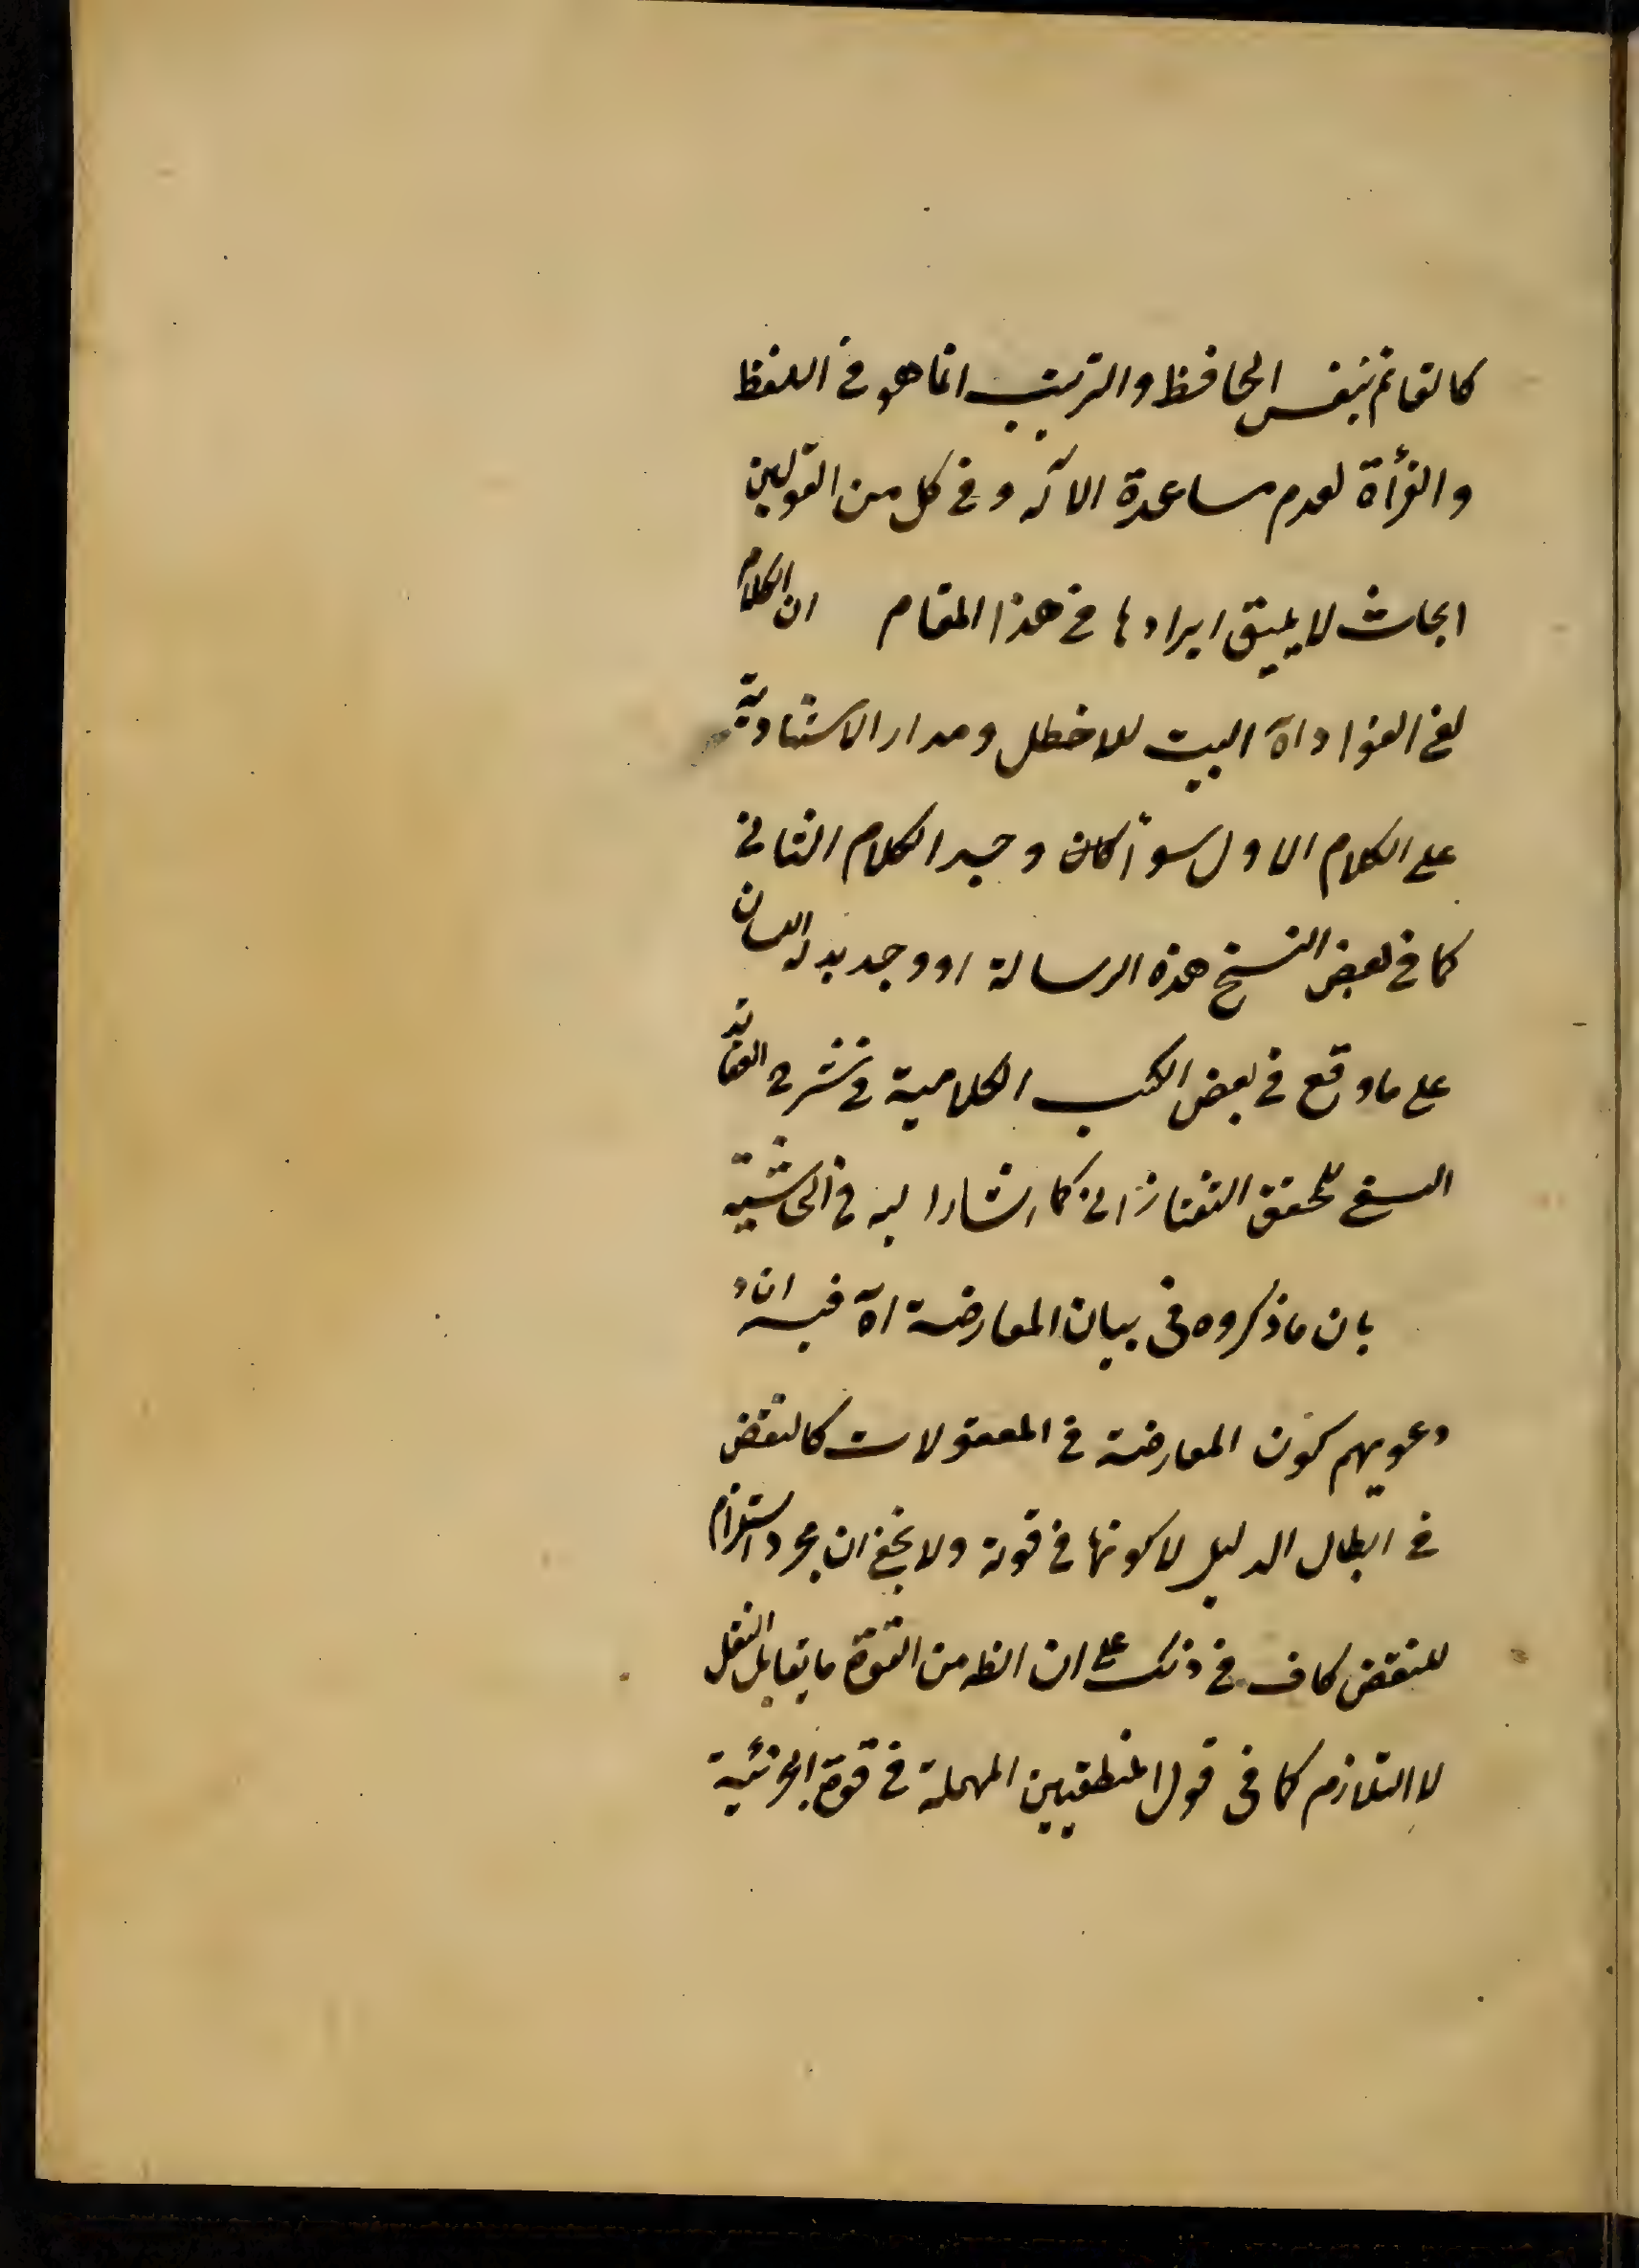 كالقائم بنفس الحافظ والترتيب انما هو فى اللفظ
والقرأة لعدم مساعدة الآلة وفى كل من القولين
ابحاث لا يليق ايرادها فى هذا المقام ان الكلام
لفى الفؤاد اه البيت للاخطل ومدار الاستشهاد به
على الكلام الاول سوآ كان وجد الكلام الثانى
كما فى بعض النسخ هذه الرسالة او وجد بدله اللسان
على ما وقع فى بعض الكتب الكلامية فى شرح العقائد
النسفى للمحقق التفتازانى كما اشار اليه فى الحاشية
بان ما ذكروه فى بيان المعارضة اه فيه ان
دعويهم كون المعارضة فى المعقولات كالنقض
فى ابطال الدليل لا كونها فى قوته ولا يخفى ان مجرد استلزام
للنقض كاف فى ذلك على ان الظ من القوة ما يقابل الفعل
لا التلازم كما فى قول المنطقيين المهملة فى قوة الجزئية